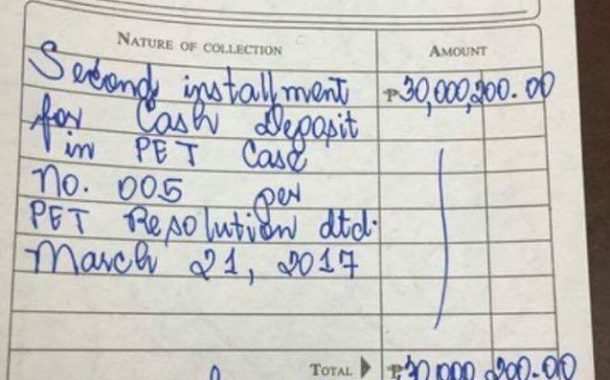 NATURE OF COLLECTION AMOUNT
Second installment ₱30,000,200.00
for Cash Deposit
in PET Case
No. 005 per
PET Resolution dtd.
March 21, 2017
TOTAL ₱30,000,200.00